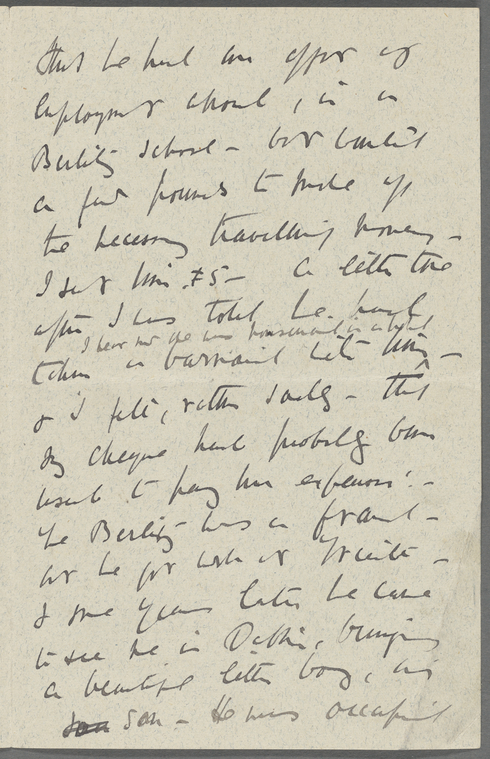 that he had an offer of
employment abroad, in a
Berlitz school - but wanted
a few pounds to make up
the necessary travelling money -
I sent him £5 - a little time
after I was told he had
I hear now she was housemaid in a hotel
taken a barmaid with him -
& I felt, rather sadly - that
my cheque had probably been
used to pay her expenses! -
The Berlitz was a fraud -
but he got work at Trieste -
& some years later he came
to see me in Dublin, bringing
a beautiful little boy, his
son - He was occupied